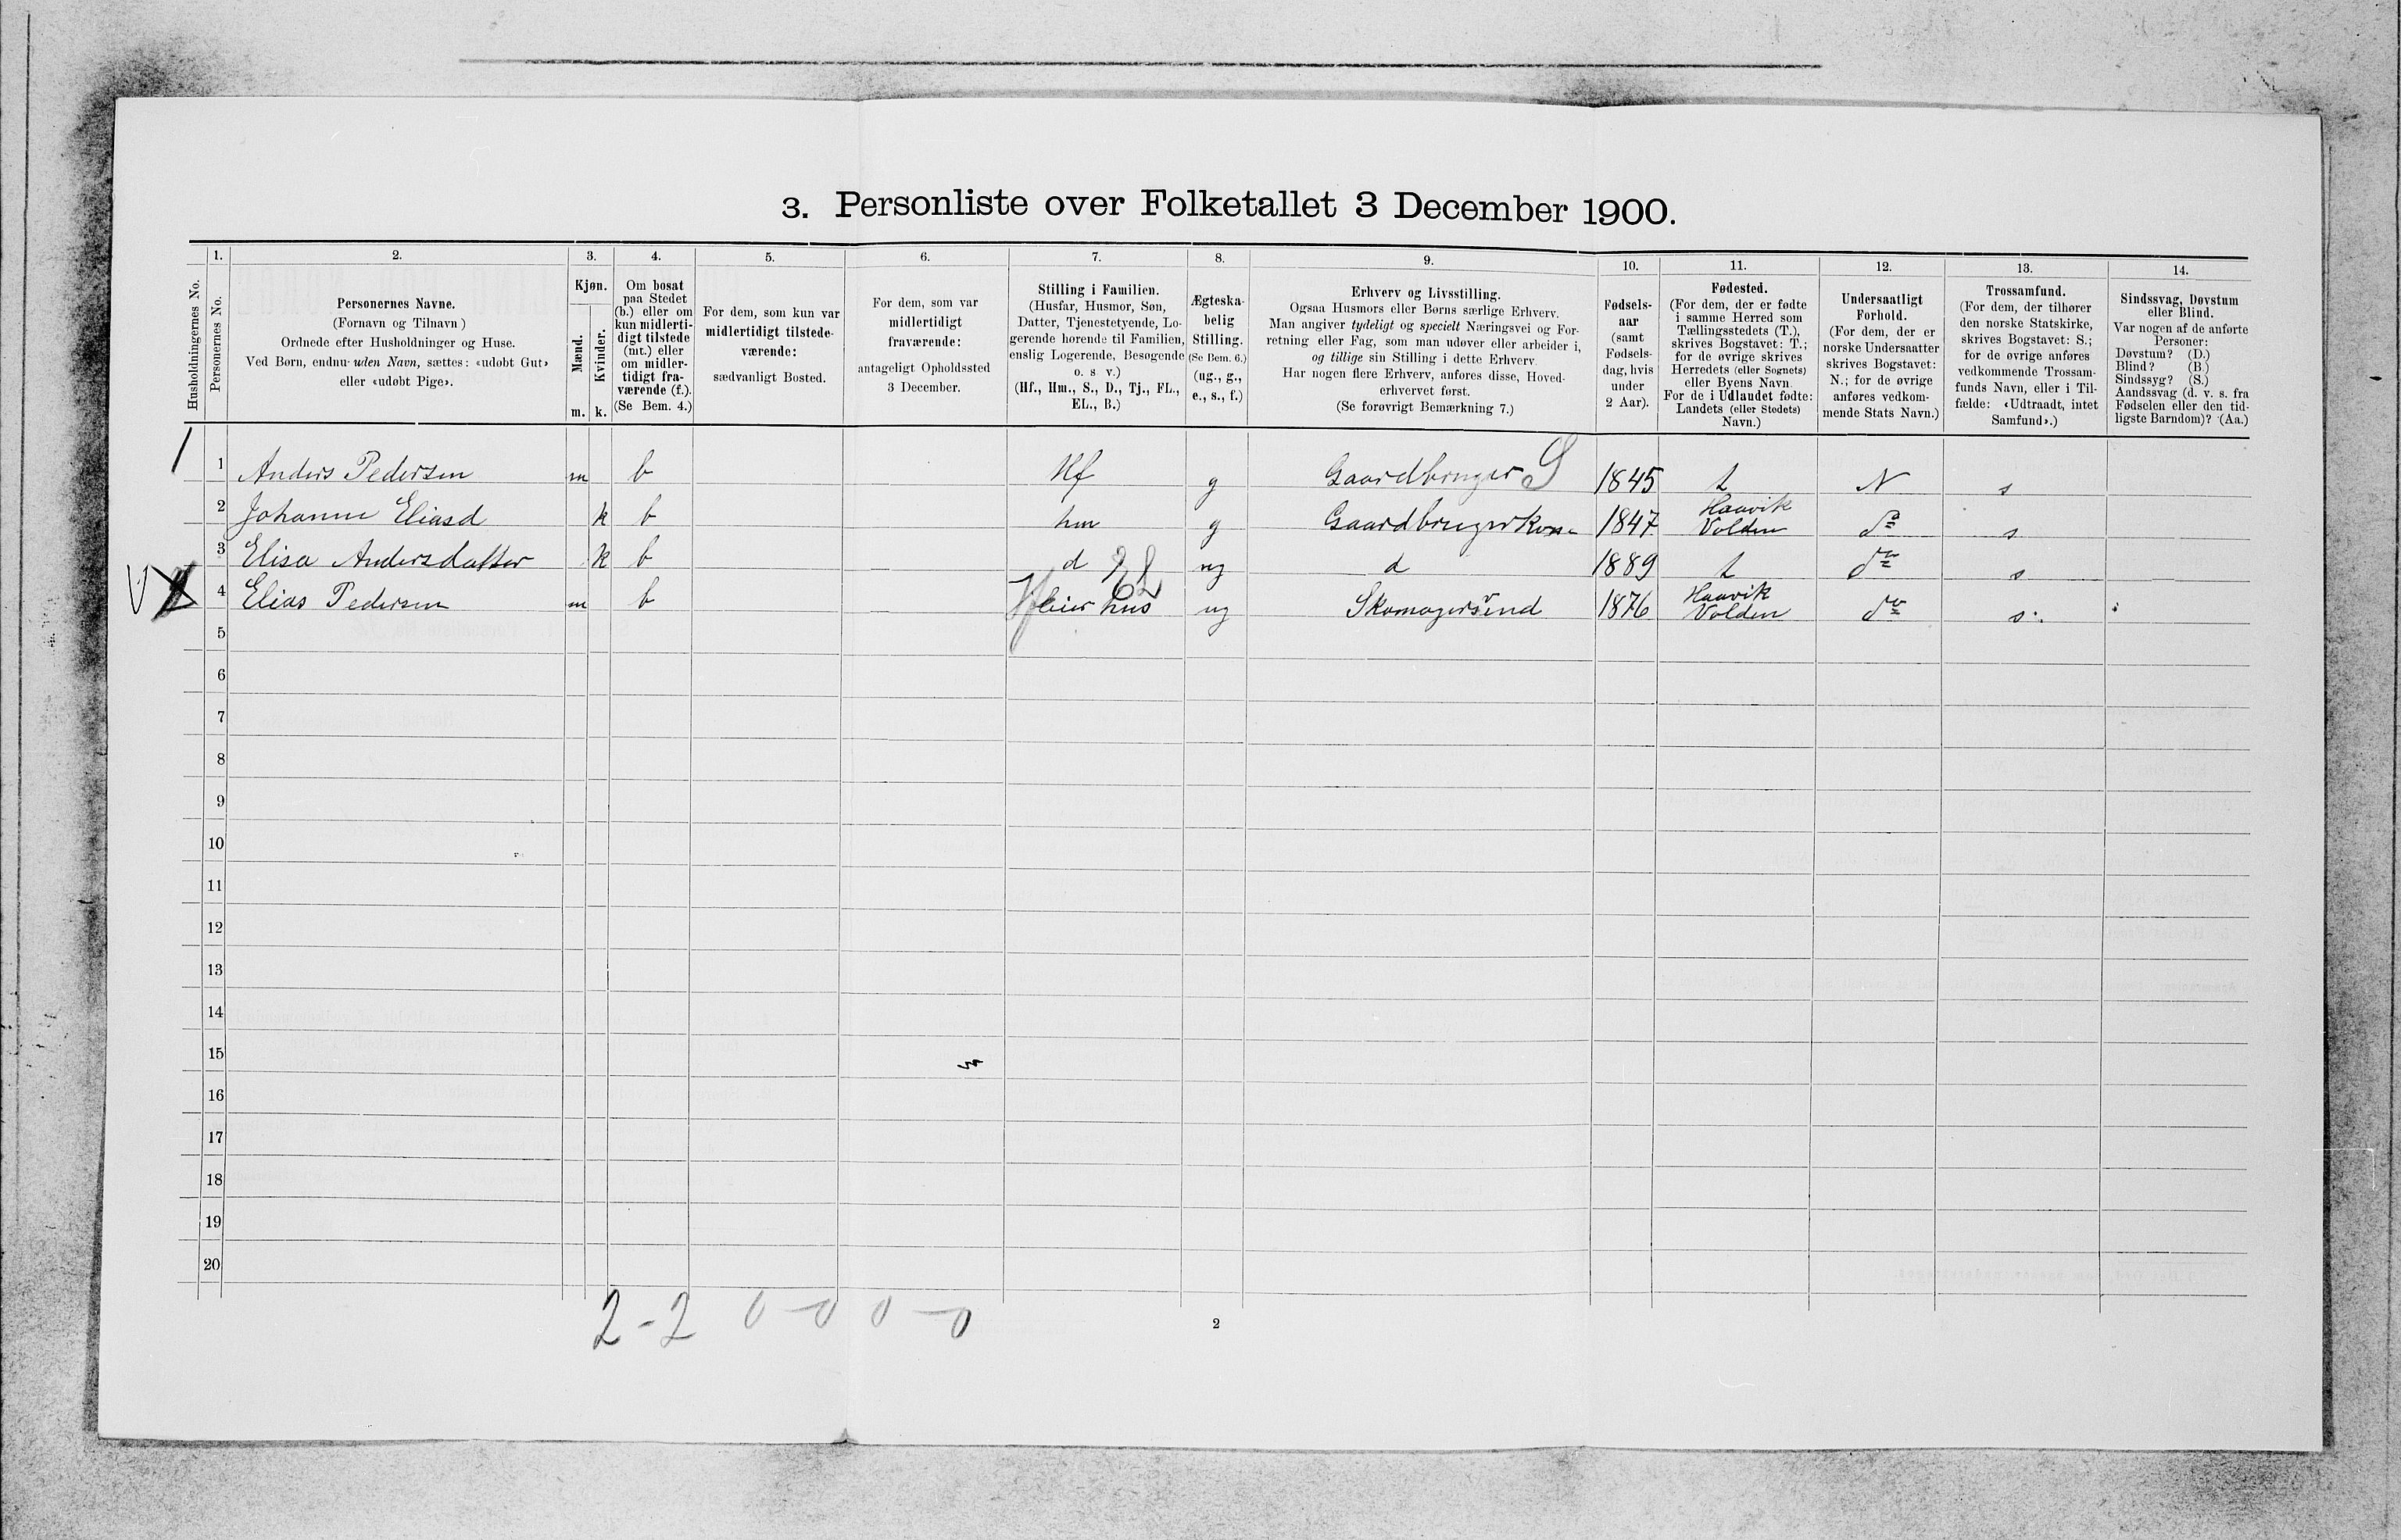 3. Personliste over Folketallet 3 December 1900.
1. 2. 3. 4. 5. 6. 7. 8. 9. 10. 11. 12. 13. 14.
Husholdningernes No.
Personernes No.
Personernes Navne.
(Fornavn og Tilnavn)
Ordnede efter Husholdninger og Huse.
Ved Børn, endnu uden Navn, sættes: «udøbt Gut»
eller «udøbt Pige».
Kjøn.
Mænd.
Kvinder.
m. k.
Om bosat
paa Stedet
(b.) eller om
kun midlerti-
digt tilstede
(mt.) eller
om midler-
tidigt fra-
værende (f.).
(Se Bem. 4.)
For dem, som kun var
midlertidigt tilstede-
værende:
sædvanligt Bosted.
For dem, som var
midlertidigt
fraværende:
antageligt Opholdssted
3 December.
Stilling i Familien.
(Husfar, Husmor, Søn,
Datter, Tjenestetyende, Lo-
gerende hørende til Familien,
enslig Logerende, Besøgende
o. s v.)
(Hf., Hm., S., D., Tj., FL.,
EL., B.)
Ægteska-
belig
Stilling.
(Se Bem. 6.)
(ug., g.,
e., s., f.)
Erhverv og Livsstilling.
Ogsaa Husmors eller Børns særlige Erhverv.
Man angiver tydeligt og specielt Næringsvei og For-
retning eller Fag, som man udøver eller arbeider i,
og tillige sin Stilling i dette Erhverv.
Har nogen flere Erhverv, anføres disse, Hoved-
erhvervet først.
(Se forøvrigt Bemærkning 7.)
Fødsels-
aar
(samt
Fødsels-
dag, hvis
under
2 Aar).
Fødested.
(For dem, der er fødte
i samme Herred som
Tællingsstedets (T.),
skrives Bogstavet: T.;
for de øvrige skrives
Herredets (eller Sognets)
eller Byens Navn.
For de i Udlandet fødte:
Landets (eller Stedets)
Navn.)
Undersaatligt
Forhold.
(For dem, der er
norske Undersaatter
skrives Bogstavet:
N.; for de øvrige
anføres vedkom-
mende Stats Navn.)
Trossamfund.
(For dem, der tilhører
den norske Statskirke,
skrives Bogstavet: S.;
for de øvrige anføres
vedkommende Trossam-
funds Navn, eller i Til-
fælde: «Udtraadt, intet
Samfund».)
Sindssvag, Døvstum
eller Blind.
Var nogen af de anførte
Personer:
Døvstum? (D.)
Blind? (B.)
Sindssyg? (S.)
Aandssvag (d. v. s. fra
Fødselen eller den tid-
ligste Barndom)? (Aa.)
1 Anders Pedersen m b Hf g Gaardbruger S 1845 t N s
2 Johanne Eliasd k b hm g Gaardbrugerkone 1847 Haavik Volden do s
3 Elisa Andersdatter k b d ug d 1889 t do s
4 Elias Pedersen m b EL leier hus ug Skomagersvend 1876 Haavik Volden do s.
5
6
7
8
9
10
11
12
13
14
15
16
17
18
19
20
2-2 0-0 0-0
2